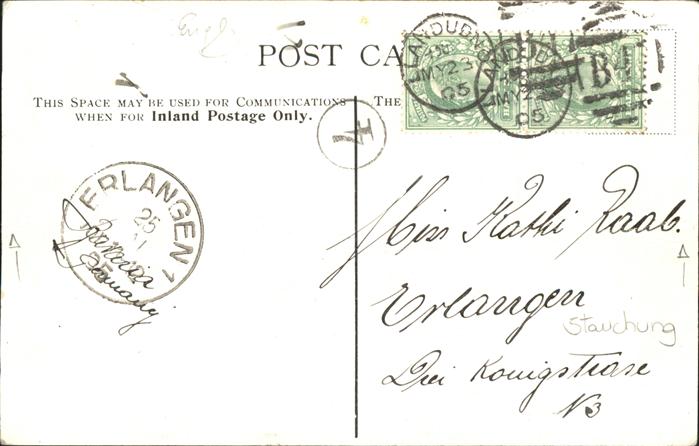 Engl
POST CA
THIS SPACE MAY BE USED FOR COMMUNICATIONS
WHEN FOR Inland Postage Only.
THE
LLANDUDNO
MY 23
05
LLANDUDNO
MY 23
05
B
4
ERLANGEN 1
25
05
Bavaria
Germany
Miss Kathi Raab.
Erlangen
Drei Konigstrase
N 3
Stauchung